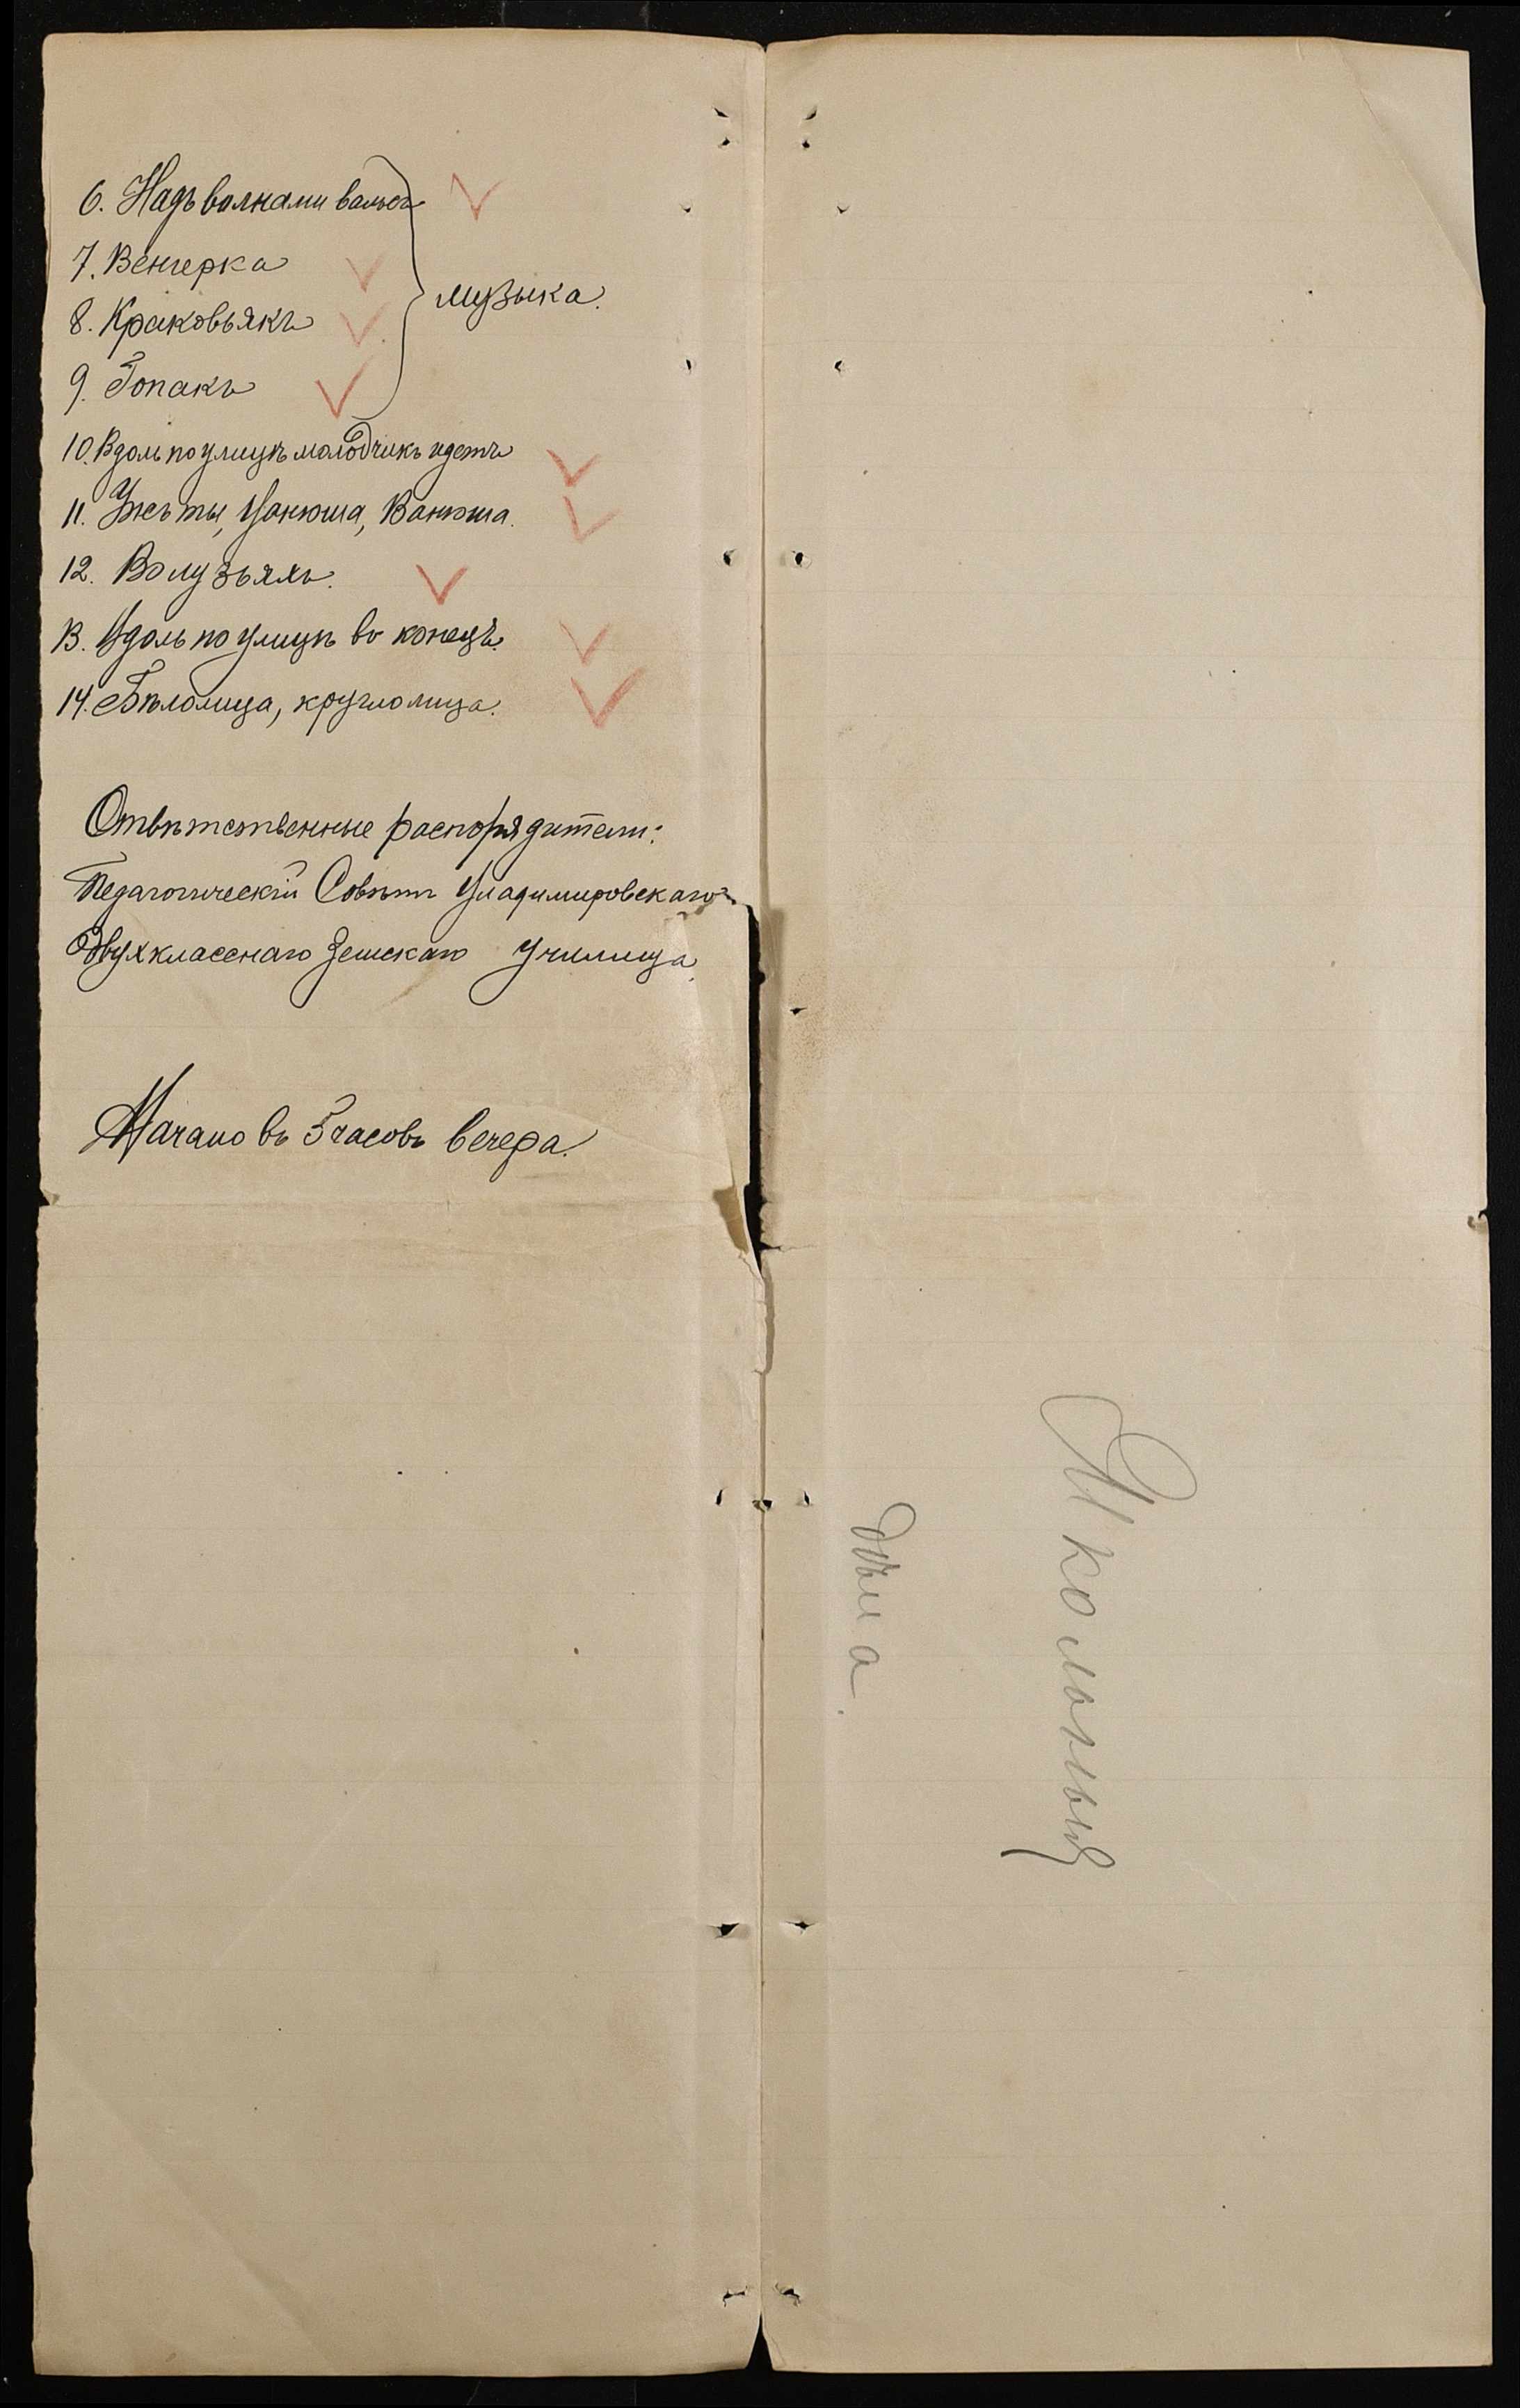 6. Надъ волнами вальсъ
7. Венгерка
8. Краковьякъ
9. Гопакъ
музыка.
10. Вдоль по улицѣ молодчикъ идетъ
11. Ужъ ты, Ванюша, Ванюша.
12. Во лузьяхъ.
13. Вдоль по улицѣ во конецъ.
14. Бѣлолица, круглолица.
Отвѣтственные распорядители:
Педагогическій Совѣтъ Владимировскаго
Двухкласснаго Земскаго Училища.
Начало въ 5 часовъ вечера.
Школьныя
дѣла.